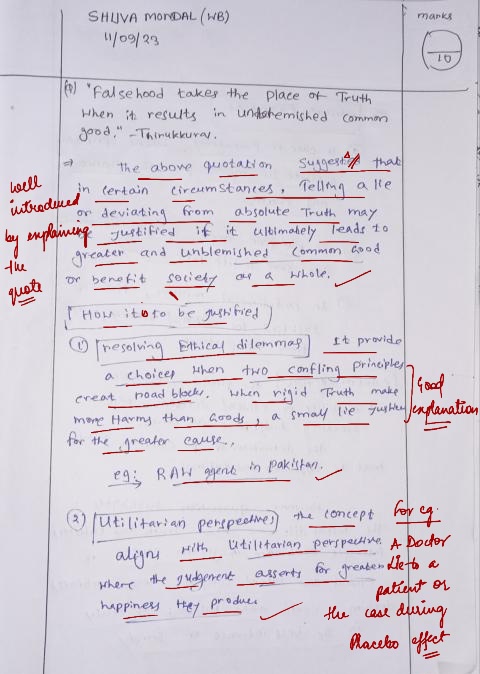 SHUVA MONDAL (WB)
11/09/23
marks
10
(Q) "Falsehood takes the place of Truth
when it results in unblemished common
good." - Thirukkural.
⇒ The above quotation suggest that
in certain circumstances, Telling a lie
or deviating from absolute Truth may
be justified if it ultimately leads to
greater and unblemished common Good
or benefit society as a whole.
Well
introduced
by explaining
the
quote
How it is to be justified
1) resolving Ethical dilemmas It provide
a choices when two confling principles
creat road blocks. when rigid Truth make
more Harms than Goods, a small lie
for the greater cause.
Good
explanation
eg: RAW agent in pakistan.
2) Utilitarian perspectives the concept
aligns with Utilitarian perspective.
where the judgement asserts for greater
happiness they produce
For eg.
A Doctor
lie to a
patient or
the case during
Placebo effect